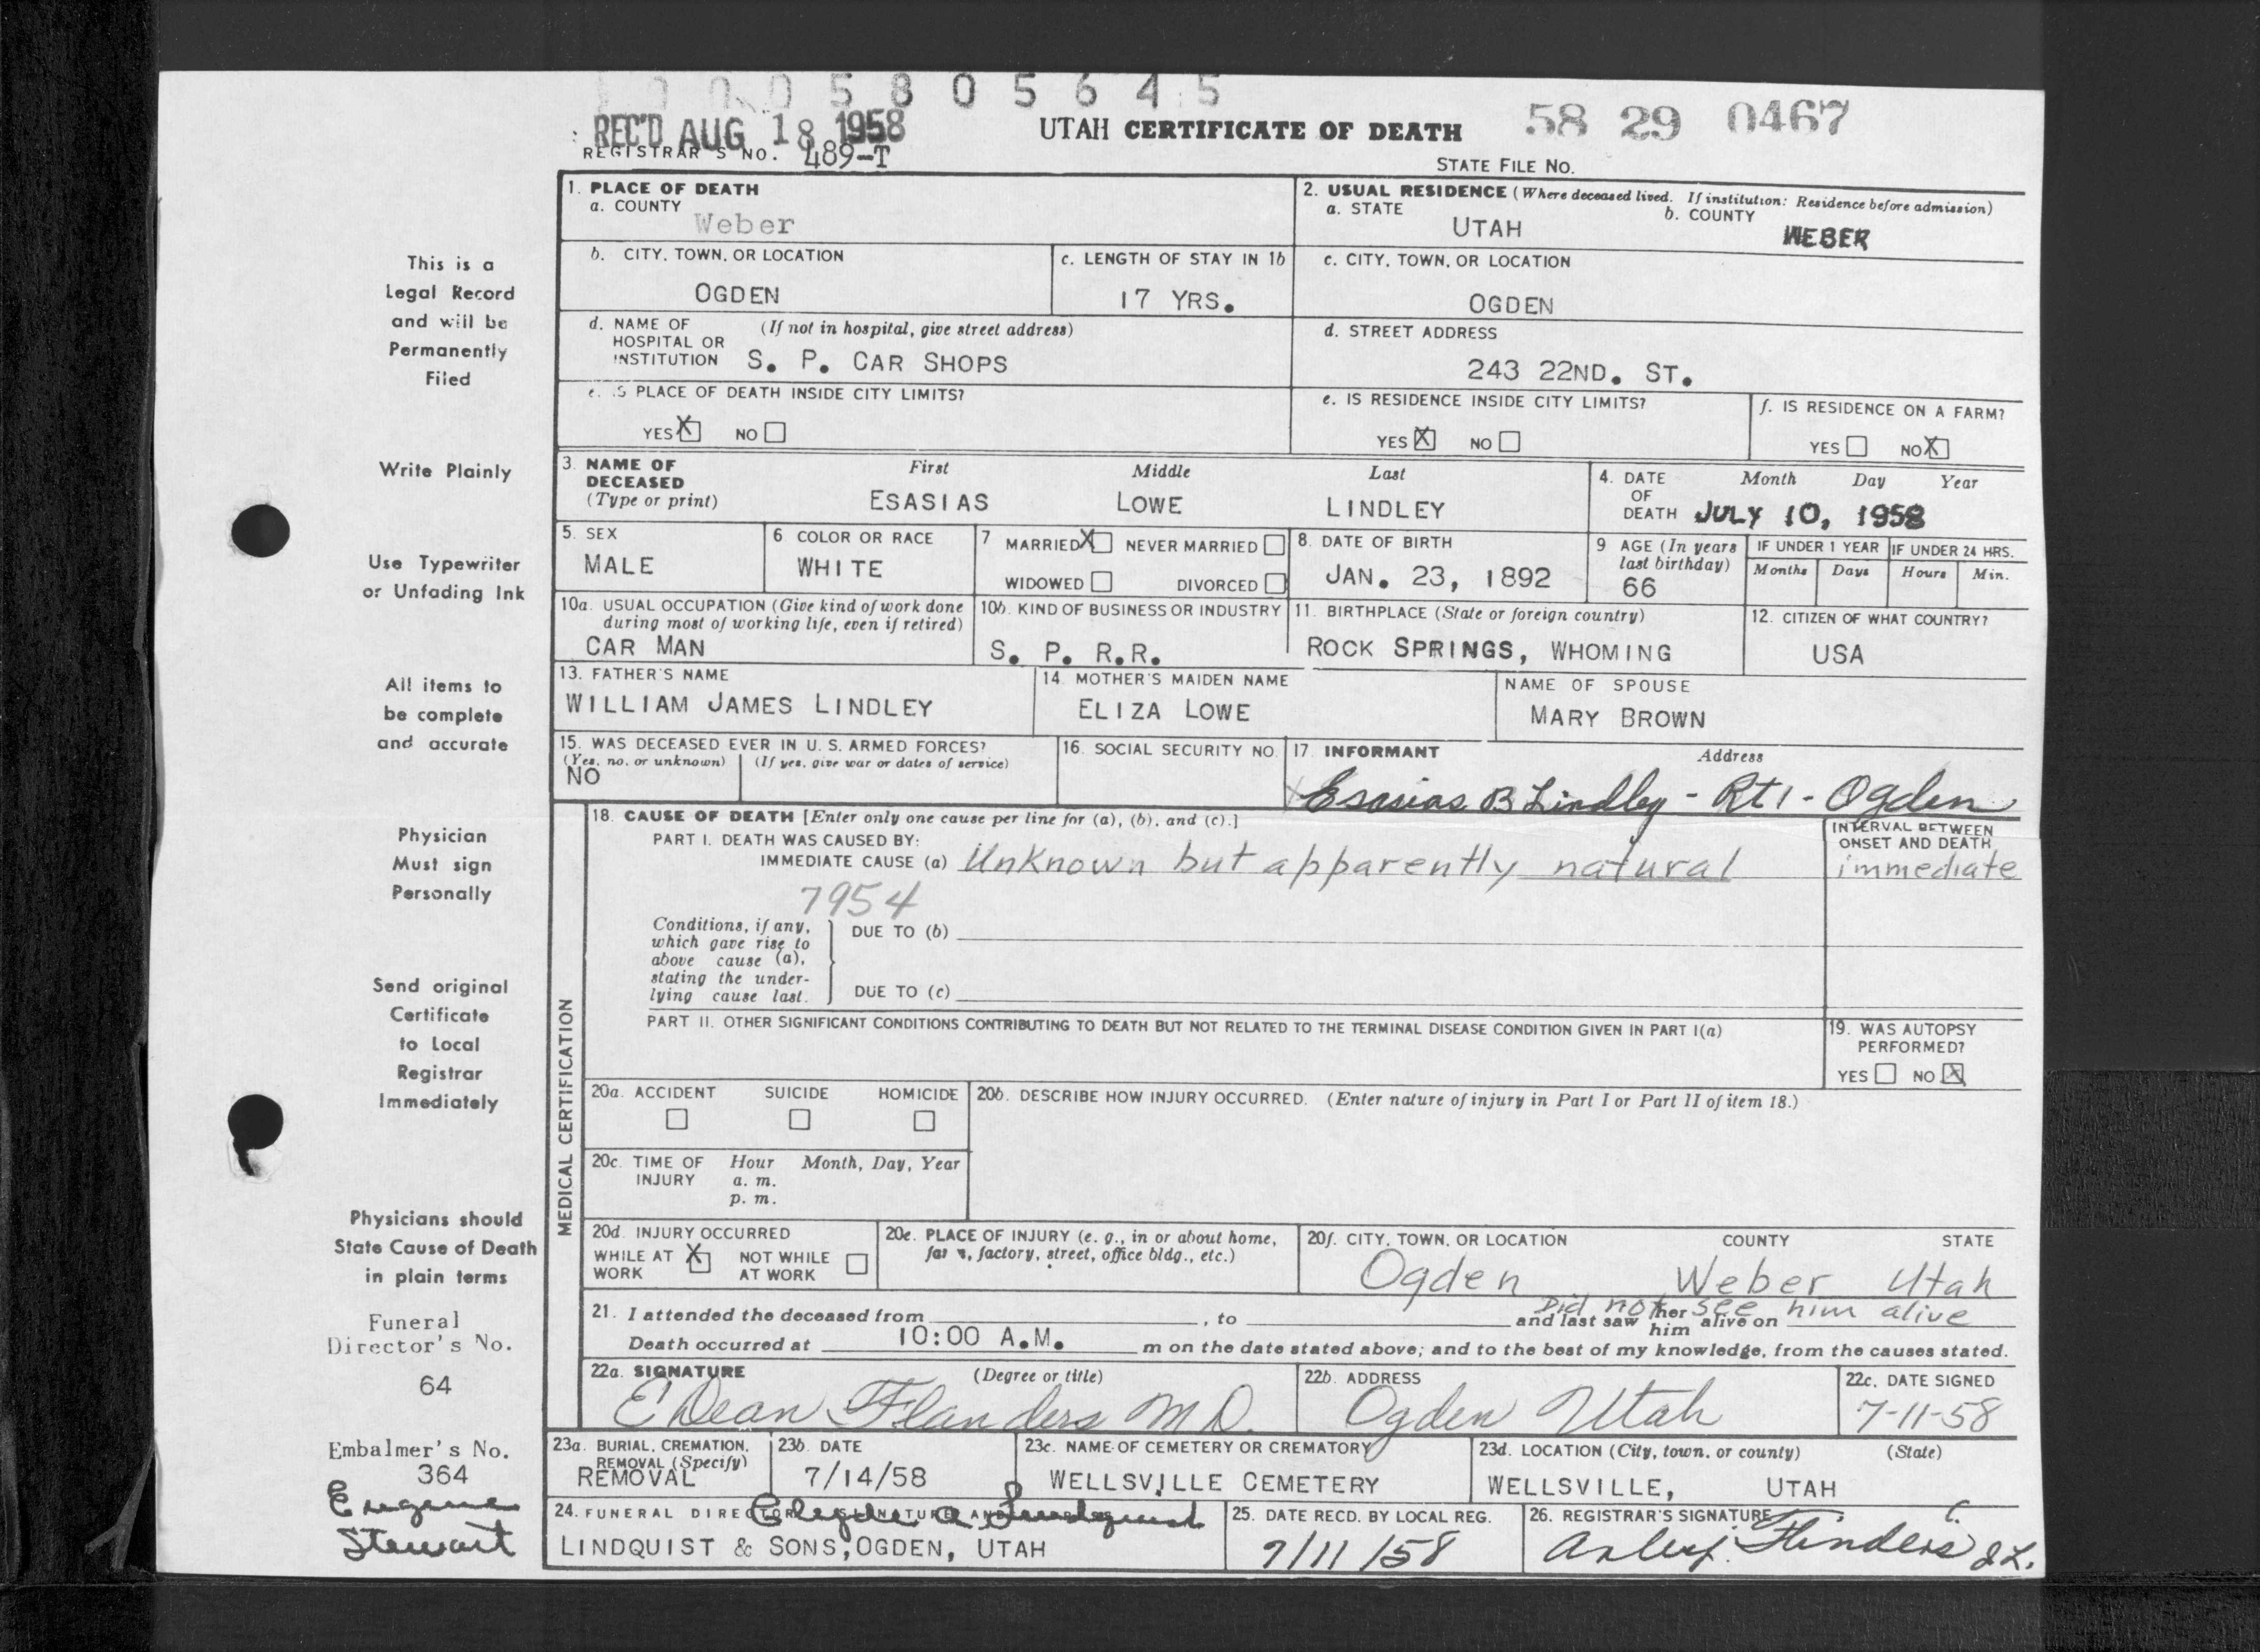 0 0 0 5 8 0 5 6 4 5
REC'D AUG 18 1958
UTAH CERTIFICATE OF DEATH
58 29 0467
REGISTRAR'S NO. 489-T
STATE FILE NO.
This is a
Legal Record
and will be
Permanently
Filed
Write Plainly
Use Typewriter
or Unfading Ink
All items to
be complete
and accurate
Physician
Must sign
Personally
Send original
Certificate
to Local
Registrar
Immediately
Physicians should
State Cause of Death
in plain terms
Funeral
Director's No.
64
Embalmer's No.
364
Eugene
Stewart
1. PLACE OF DEATH
a. COUNTY
Weber
2. USUAL RESIDENCE (Where deceased lived. If institution: Residence before admission)
a. STATE
UTAH
b. COUNTY
WEBER
b. CITY, TOWN, OR LOCATION
OGDEN
c. LENGTH OF STAY IN 1b
17 YRS.
c. CITY, TOWN, OR LOCATION
OGDEN
d. NAME OF (If not in hospital, give street address)
HOSPITAL OR
INSTITUTION S. P. CAR SHOPS
d. STREET ADDRESS
243 22ND. ST.
e. IS PLACE OF DEATH INSIDE CITY LIMITS?
YES X NO
e. IS RESIDENCE INSIDE CITY LIMITS?
YES X NO
f. IS RESIDENCE ON A FARM?
YES NO X
3. NAME OF
DECEASED
(Type or print)
First Middle Last
ESASIAS LOWE LINDLEY
4. DATE
OF
DEATH
Month Day Year
JULY 10, 1958
5. SEX
MALE
6 COLOR OR RACE
WHITE
7 MARRIED X NEVER MARRIED
WIDOWED DIVORCED
8. DATE OF BIRTH
JAN. 23, 1892
9 AGE (In years
last birthday)
66
IF UNDER 1 YEAR
Months Days
IF UNDER 24 HRS.
Hours Min.
10a. USUAL OCCUPATION (Give kind of work done
during most of working life, even if retired)
CAR MAN
10b. KIND OF BUSINESS OR INDUSTRY
S. P. R.R.
11. BIRTHPLACE (State or foreign country)
ROCK SPRINGS, WHOMING
12. CITIZEN OF WHAT COUNTRY?
USA
13. FATHER'S NAME
WILLIAM JAMES LINDLEY
14. MOTHER'S MAIDEN NAME
ELIZA LOWE
NAME OF SPOUSE
MARY BROWN
15. WAS DECEASED EVER IN U. S. ARMED FORCES?
(Yes, no, or unknown) (If yes, give war or dates of service)
NO
16. SOCIAL SECURITY NO.
17. INFORMANT Address
Esasias B Lindley - Rt 1 - Ogden
MEDICAL CERTIFICATION
18. CAUSE OF DEATH [Enter only one cause per line for (a), (b), and (c).]
PART I. DEATH WAS CAUSED BY:
IMMEDIATE CAUSE (a) Unknown but apparently natural
INTERVAL BETWEEN
ONSET AND DEATH
immediate
7954
Conditions, if any,
which gave rise to
above cause (a),
stating the under-
lying cause last.
DUE TO (b)
DUE TO (c)
PART II. OTHER SIGNIFICANT CONDITIONS CONTRIBUTING TO DEATH BUT NOT RELATED TO THE TERMINAL DISEASE CONDITION GIVEN IN PART I(a)
19. WAS AUTOPSY
PERFORMED?
YES NO X
20a. ACCIDENT SUICIDE HOMICIDE
20b. DESCRIBE HOW INJURY OCCURRED. (Enter nature of injury in Part I or Part II of item 18.)
20c. TIME OF Hour Month, Day, Year
INJURY a. m.
p. m.
20d. INJURY OCCURRED
WHILE AT X NOT WHILE
WORK AT WORK
20e. PLACE OF INJURY (e. g., in or about home,
farm, factory, street, office bldg., etc.)
20f. CITY, TOWN, OR LOCATION COUNTY STATE
Ogden Weber Utah
Did not see him alive
21. I attended the deceased from , to and last saw her him alive on
Death occurred at 10:00 A.M. m on the date stated above; and to the best of my knowledge, from the causes stated.
22a. SIGNATURE (Degree or title)
E Dean Flanders M D.
22b. ADDRESS
Ogden Utah
22c. DATE SIGNED
7-11-58
23a. BURIAL, CREMATION,
REMOVAL (Specify)
REMOVAL
23b. DATE
7/14/58
23c. NAME OF CEMETERY OR CREMATORY
WELLSVILLE CEMETERY
23d. LOCATION (City, town, or county) (State)
WELLSVILLE, UTAH
24. FUNERAL DIRECTOR'S SIGNATURE AND
LINDQUIST & SONS, OGDEN, UTAH
25. DATE RECD. BY LOCAL REG.
7/11/58
26. REGISTRAR'S SIGNATURE